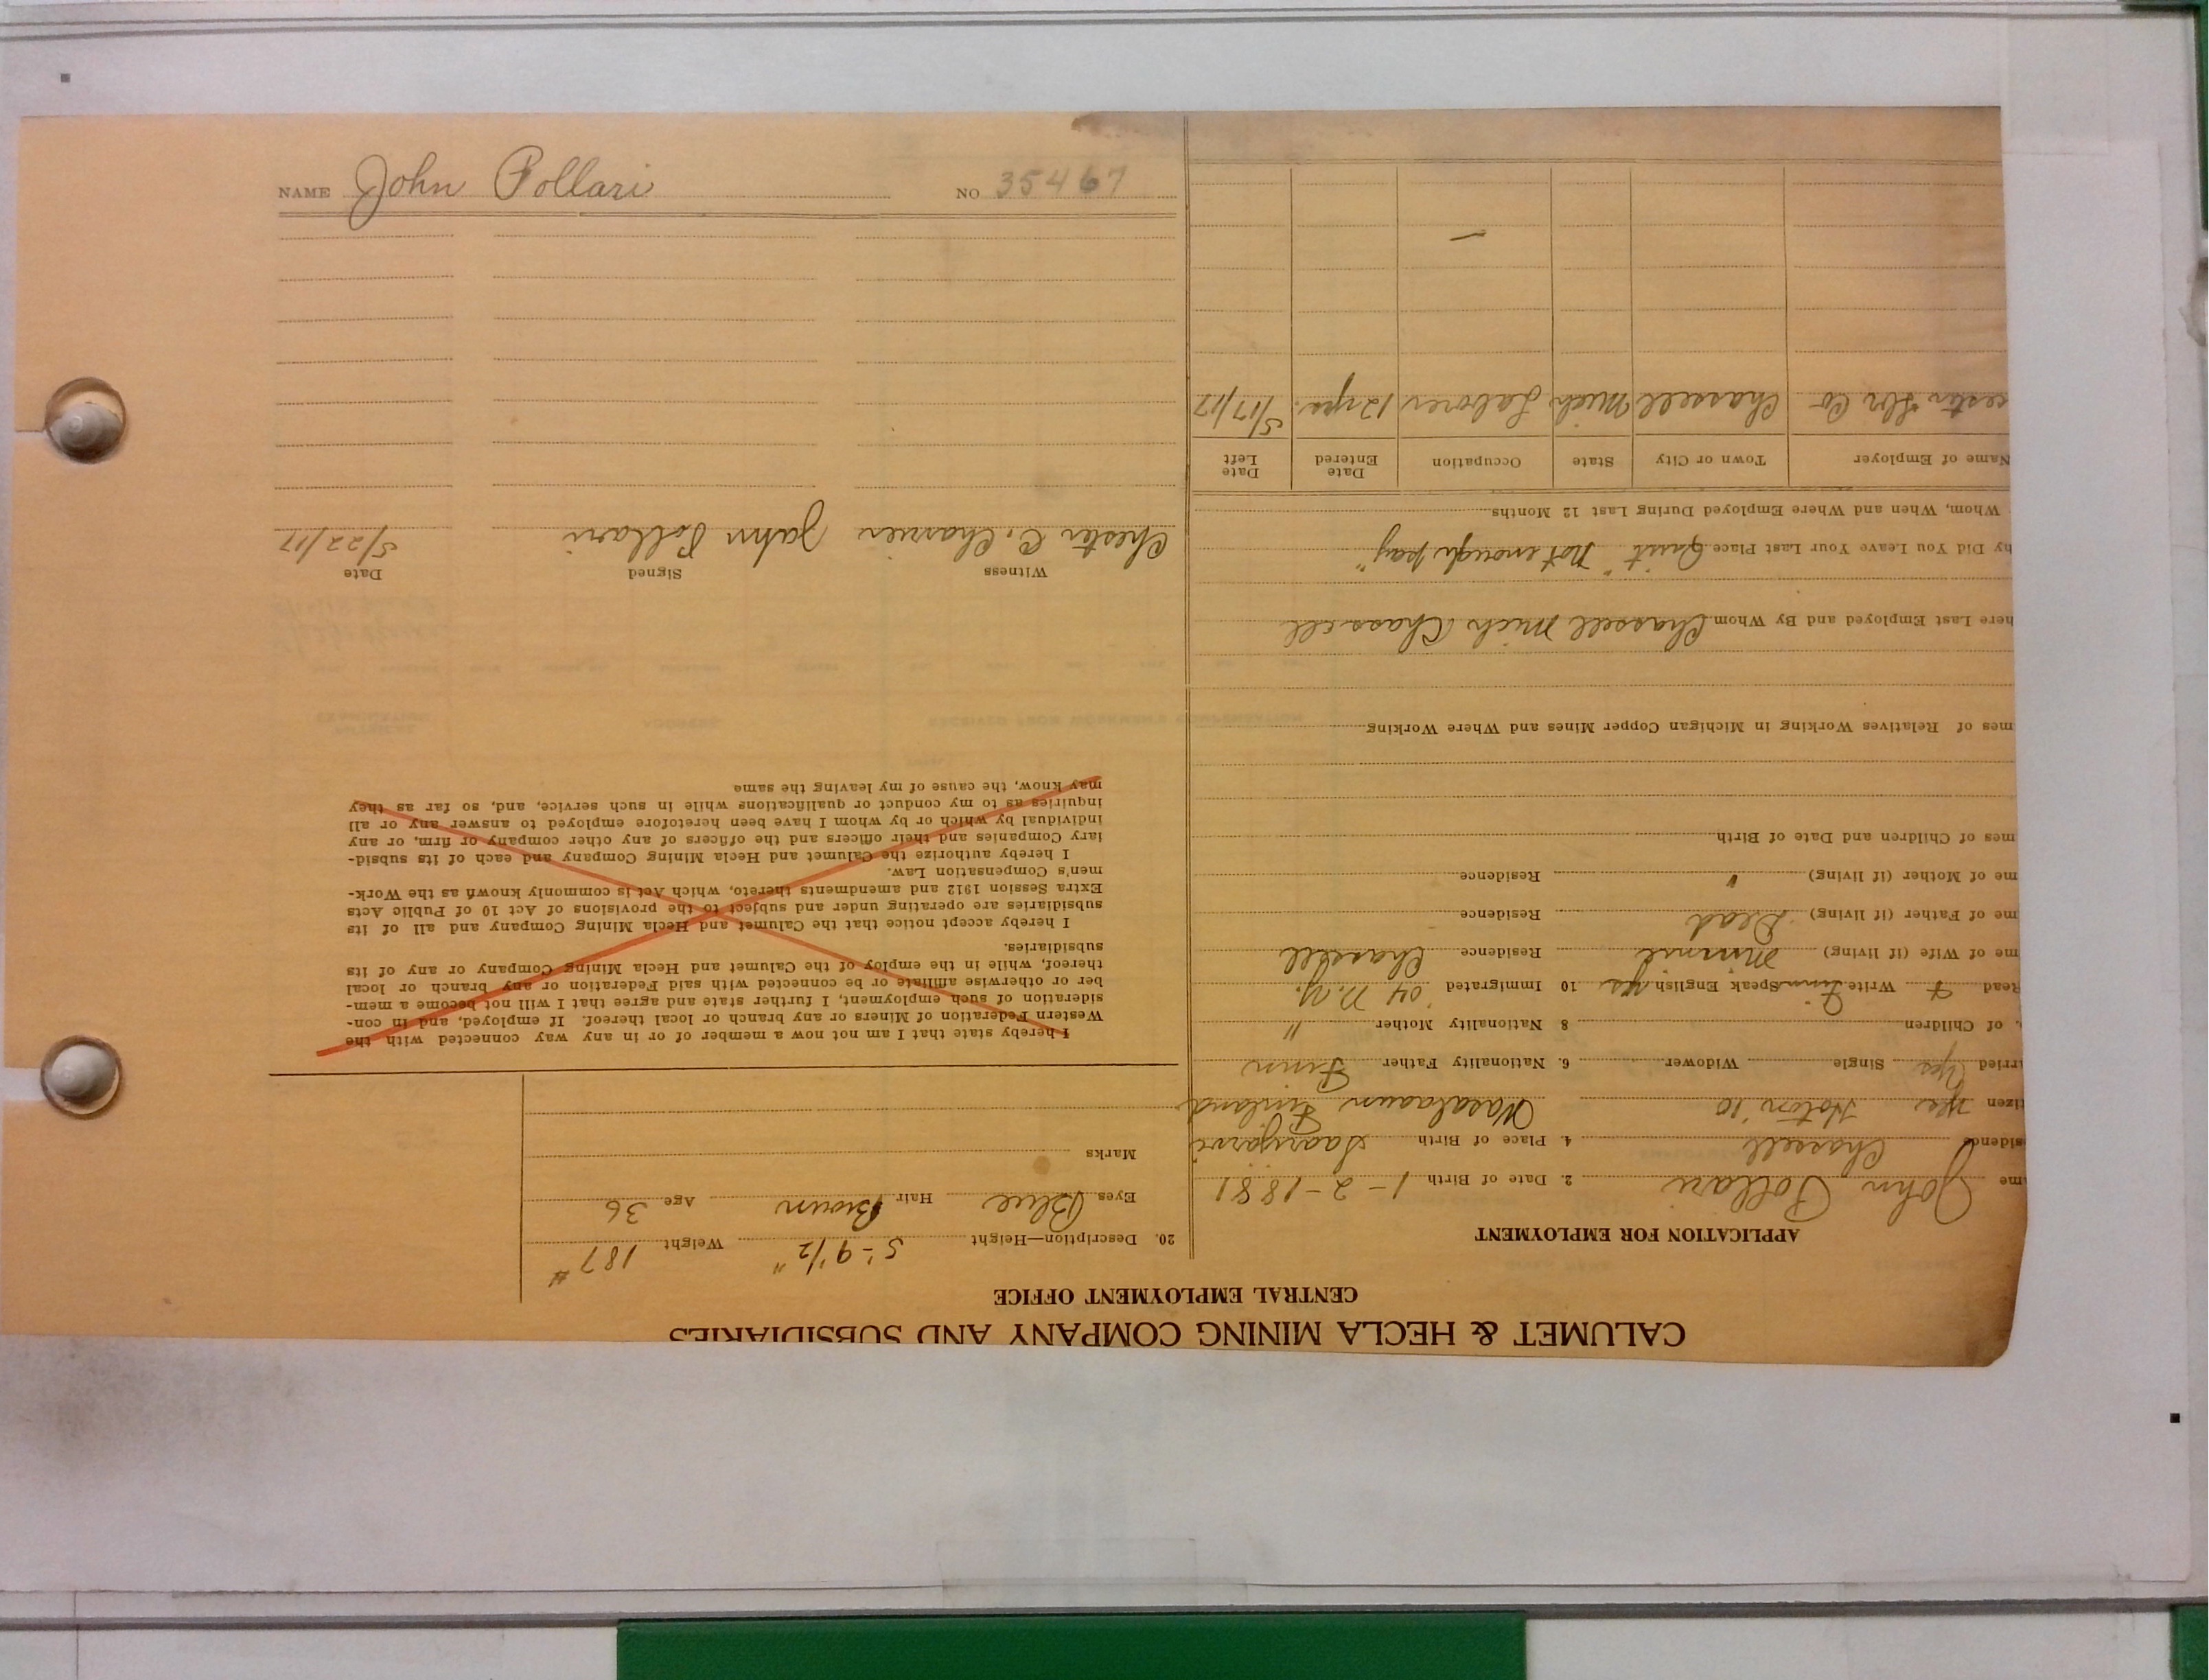 NAME John Pollari NO 35467
CALUMET & HECLA MINING COMPANY AND SUBSIDIARIES
CENTRAL EMPLOYMENT OFFICE
APPLICATION FOR EMPLOYMENT
me John Pollari 2. Date of Birth 1-2-1881
sidence Chassell 4. Place of Birth Saarijarvi
tizen Yes Hoton '10 Wasalaaun Finland
rried Yes Single Widower 6. Nationality Father Finn
. of Children 8 Nationality Mother "
Read F Write Finn Speak English yes 10 Immigrated '04 N.Y.
me of Wife (if living) Minnie Residence Chassell
me of Father (if living) Dead Residence
me of Mother (if living) " Residence
mes of Children and Date of Birth
mes of Relatives Working in Michigan Copper Mines and Where Working
here Last Employed and By Whom Chassell Mich Chassell
hy Did You Leave Your Last Place Quit "Not enough pay"
Whom, When and Where Employed During Last 12 Months
Name of Employer Town or City State Occupation Date Entered Date Left
cester Lbr Co Chassell Mich Laborer 12 yrs. 5/17/17
20. Description—Height 5'-9 1/2" Weight 187#
Eyes Blue Hair Brown Age 36
Marks
I hereby state that I am not now a member of or in any way connected with the
Western Federation of Miners or any branch or local thereof. If employed, and in con-
sideration of such employment, I further state and agree that I will not become a mem-
ber or otherwise affiliate or be connected with said Federation or any branch or local
thereof, while in the employ of the Calumet and Hecla Mining Company or any of its
subsidiaries.
I hereby accept notice that the Calumet and Hecla Mining Company and all of its
subsidiaries are operating under and subject to the provisions of Act 10 of Public Acts
Extra Session 1912 and amendments thereto, which Act is commonly known as the Work-
men's Compensation Law.
I hereby authorize the Calumet and Hecla Mining Company and each of its subsid-
iary Companies and their officers and the officers of any other company or firm, or any
individual by which or by whom I have been heretofore employed to answer any or all
inquiries as to my conduct or qualifications while in such service, and, so far as they
may know, the cause of my leaving the same
Witness Signed Date
Chester C. Charrier John Pollari 5/22/17